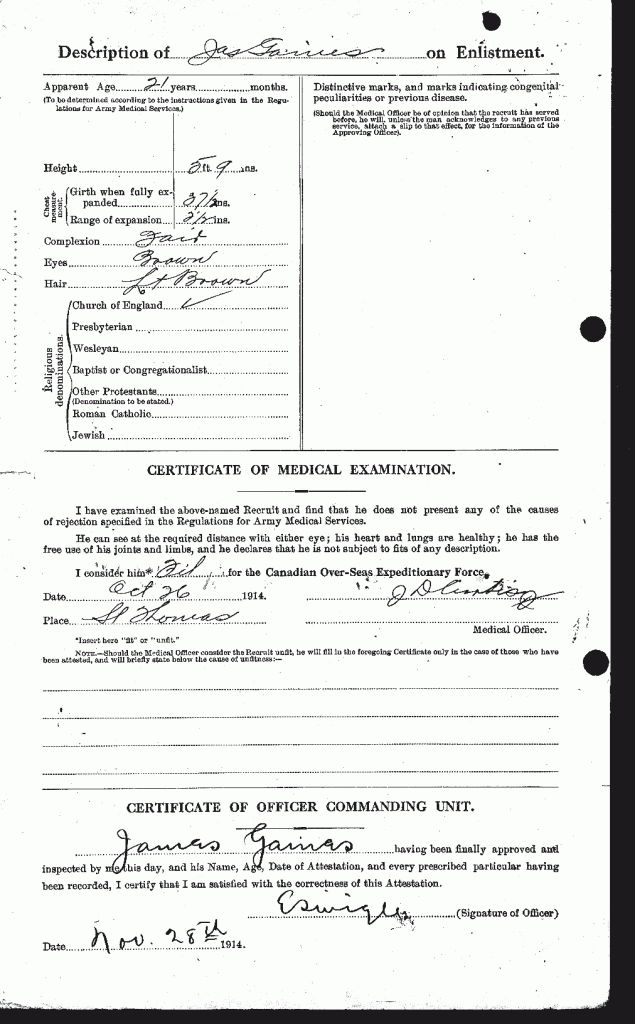 Description of Jas Gaines on Enlistment.
Apparent Age 21 years months.
(To be determined according to the instructions given in the Regu-
lations for Army Medical Services.)
Height 5 ft. 9 ins.
Chest measure-
ment.
Girth when fully ex-
panded 37½ ins.
Range of expansion 3½ ins.
Complexion Fair
Eyes Brown
Hair Lt Brown
Religious
denominations.
Church of England ✓
Presbyterian
Wesleyan
Baptist or Congregationalist
Other Protestants
(Denomination to be stated.)
Roman Catholic
Jewish
Distinctive marks, and marks indicating congenital
peculiarities or previous disease.
(Should the Medical Officer be of opinion that the recruit has served
before, he will, unless the man acknowledges to any previous
service, attach a slip to that effect, for the information of the
Approving Officer).
CERTIFICATE OF MEDICAL EXAMINATION.
I have examined the above-named Recruit and find that he does not present any of the causes
of rejection specified in the Regulations for Army Medical Services.
He can see at the required distance with either eye; his heart and lungs are healthy; he has the
free use of his joints and limbs, and he declares that he is not subject to fits of any description.
I consider him* Fit for the Canadian Over-Seas Expeditionary Force.
Date Oct 26 1914.
Place St Thomas
Medical Officer.
*Insert here "fit" or "unfit."
NOTE.—Should the Medical Officer consider the Recruit unfit, he will fill in the foregoing Certificate only in the case of those who have
been attested, and will briefly state below the cause of unfitness:—
CERTIFICATE OF OFFICER COMMANDING UNIT.
James Gaines having been finally approved and
inspected by me this day, and his Name, Age, Date of Attestation, and every prescribed particular having
been recorded, I certify that I am satisfied with the correctness of this Attestation.
(Signature of Officer)
Date Nov. 28th 1914.